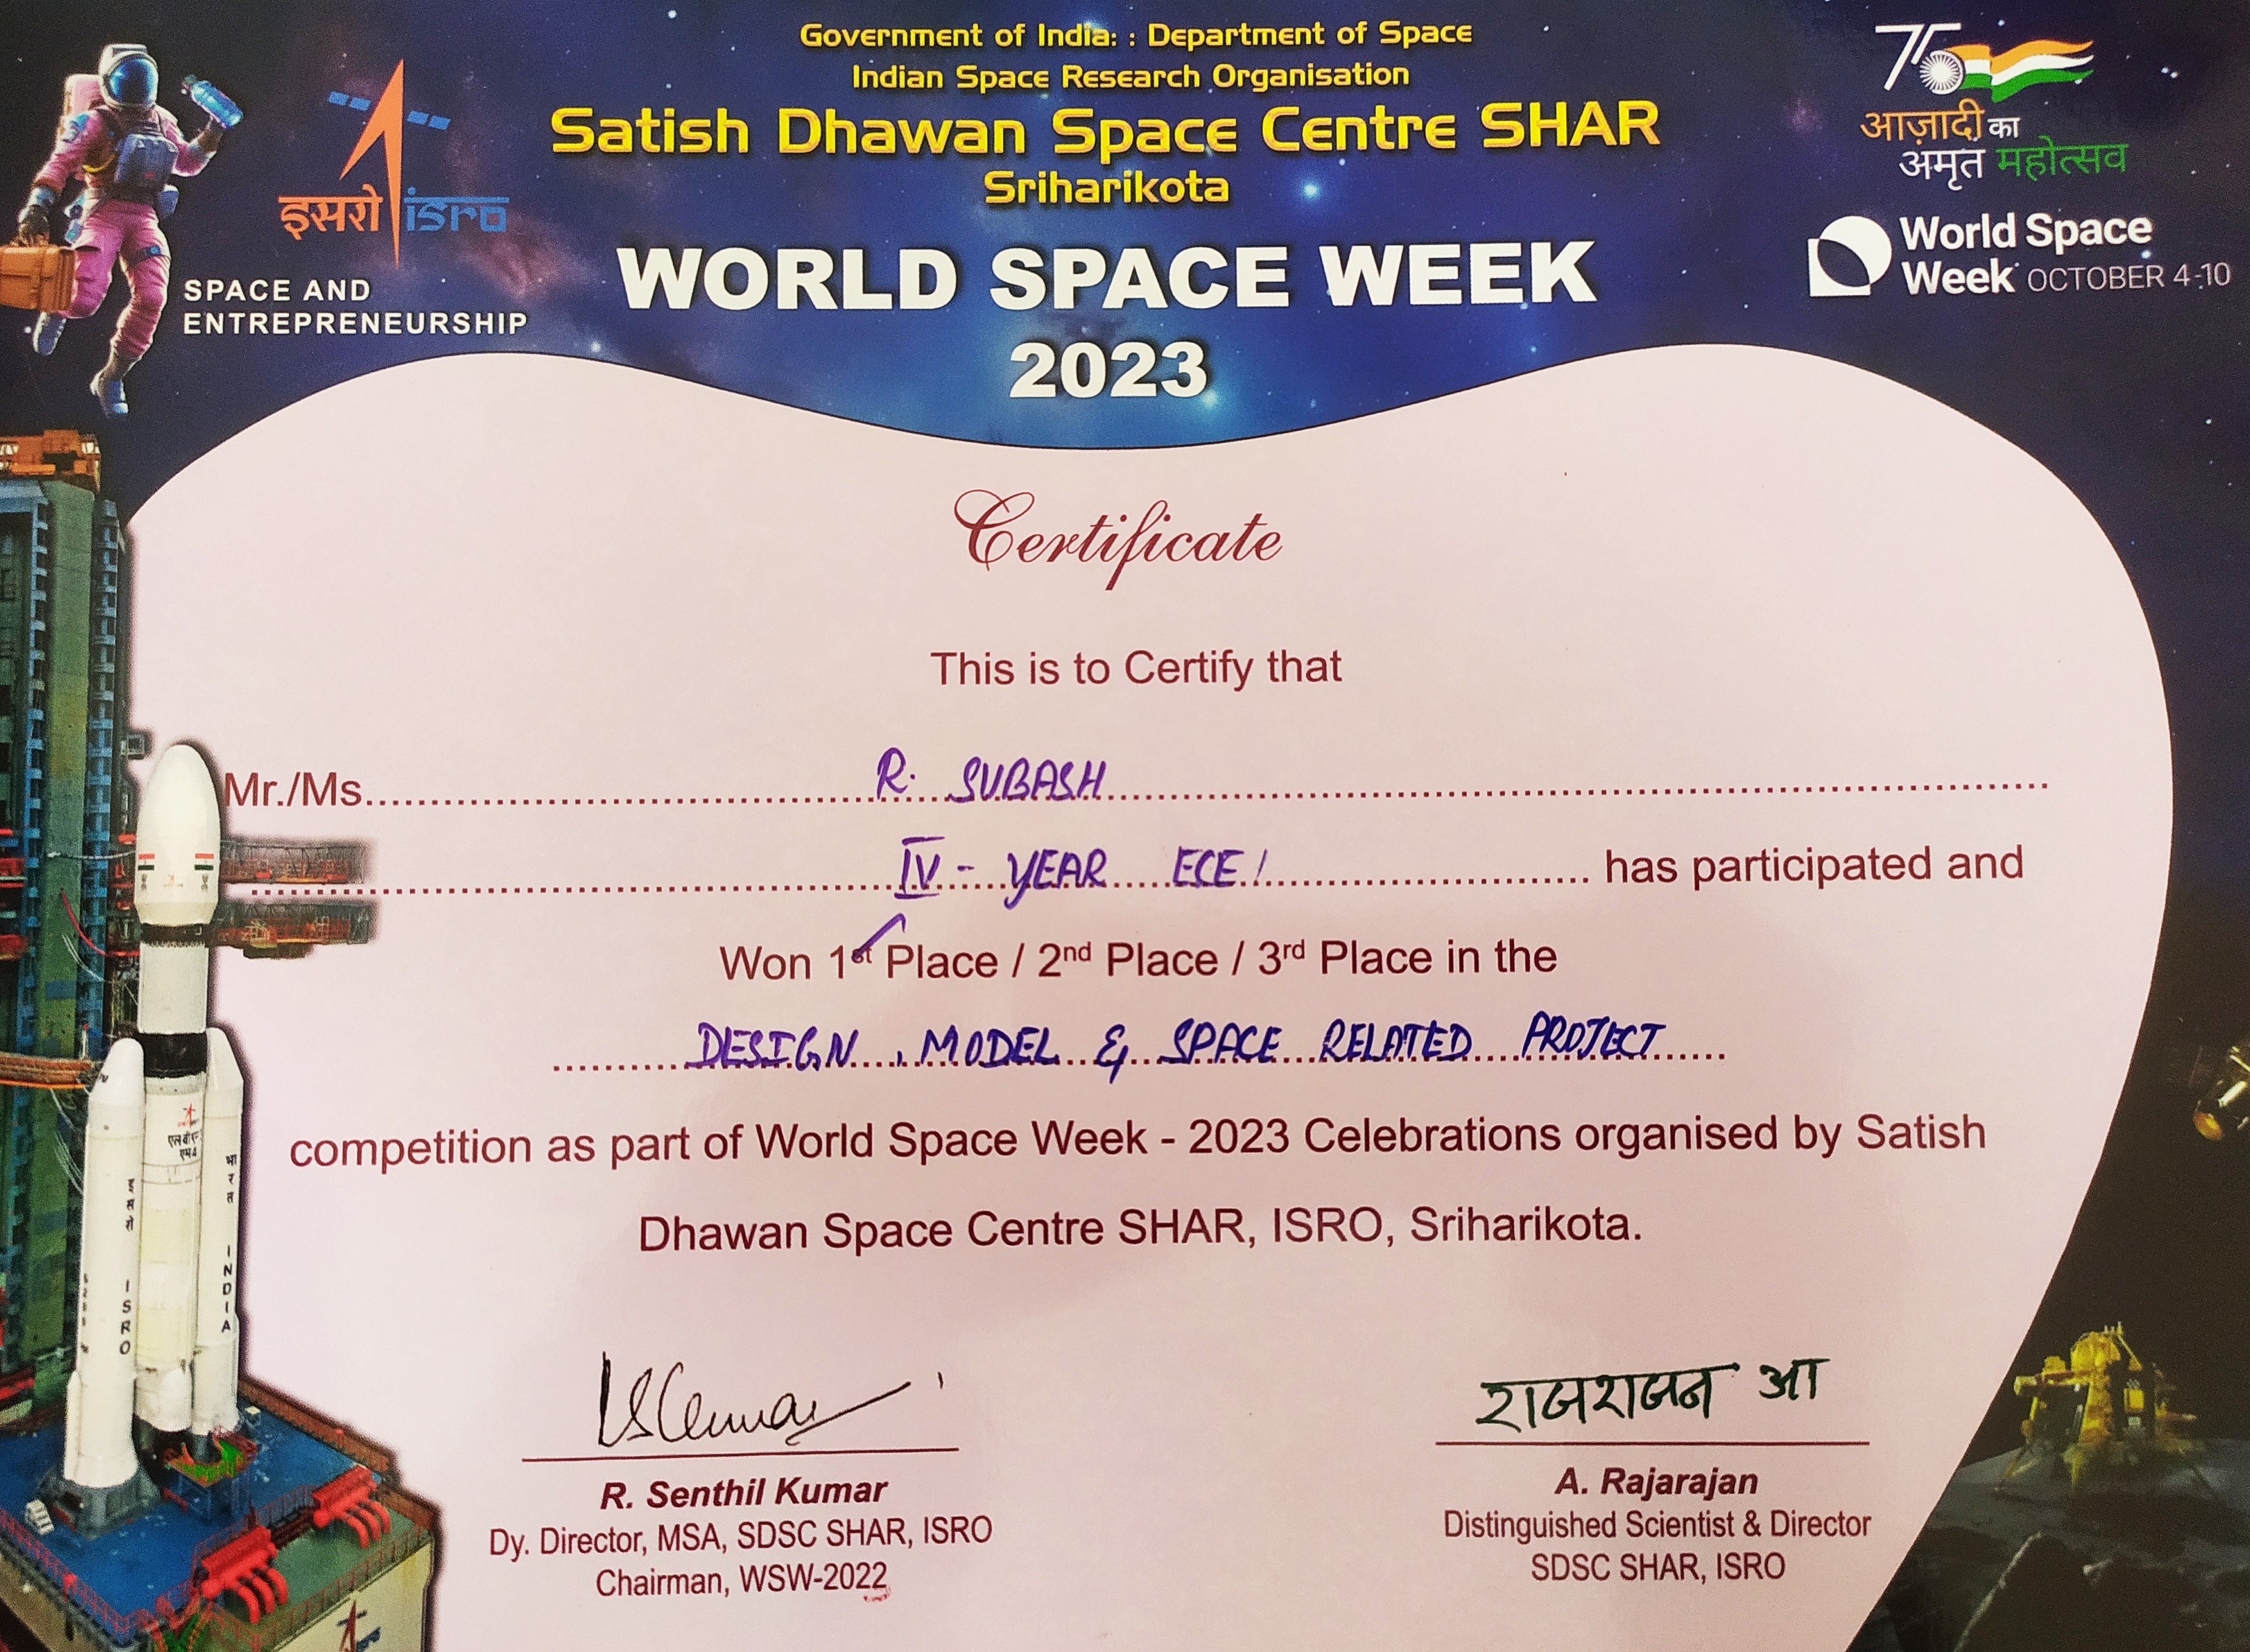 Government of India: : Department of Space
Indian Space Research Organisation
Satish Dhawan Space Centre SHAR
Sriharikota
इसरो isro
SPACE AND
ENTREPRENEURSHIP
75
आज़ादी का
अमृत महोत्सव
World Space
Week OCTOBER 4-10
WORLD SPACE WEEK
2023
Certificate
This is to Certify that
Mr./Ms. R. SUBASH
IV - YEAR ECE / has participated and
Won 1st Place / 2nd Place / 3rd Place in the
DESIGN , MODEL & SPACE RELATED PROJECT
competition as part of World Space Week - 2023 Celebrations organised by Satish
Dhawan Space Centre SHAR, ISRO, Sriharikota.
इसरो ISRO
भारत INDIA
राजराजन आ
R. Senthil Kumar
Dy. Director, MSA, SDSC SHAR, ISRO
Chairman, WSW-2022
A. Rajarajan
Distinguished Scientist & Director
SDSC SHAR, ISRO